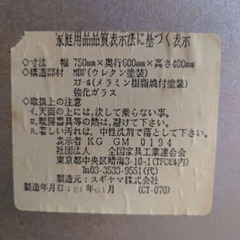 家庭用品品質表示法に基づく表示
◇寸法 幅 750mm×奥行600mm×高さ400mm
◇構造部材 MDF(ウレタン塗装)
スチール(メラミン樹脂焼付塗装)
強化ガラス
◇取扱上の注意
イ.天面の上には、決して乗らない事。
ロ.暖房器具等の熱は、避けて下さい。
ハ.著しい汚れは、中性洗剤で落として下さい。
表示者 KG GM 0194
社団法人 全国家具工業連合会
東京都中央区晴海3-10-1(TFCビル内)
Tel03-3533-9551(代)
製造元:スギヤマ株式会社
製造年月日 01年01月 (CT-070)